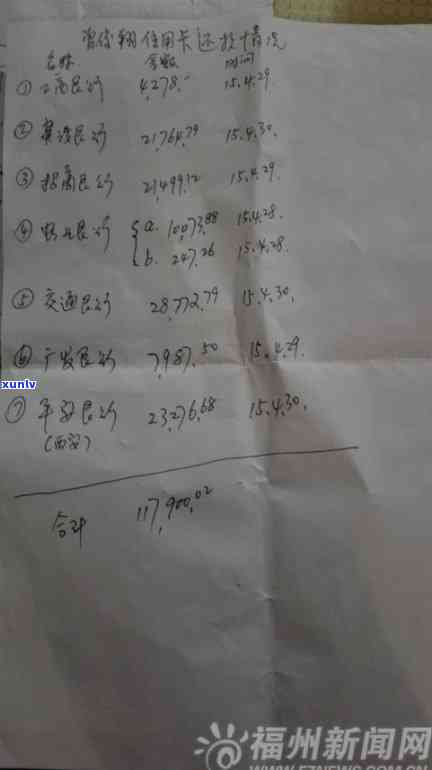 曾俊翔信用卡还款情况
名称 金额 时间
① 工商银行 4,278.- 15.4.29
② 建设银行 21,764.79 15.4.30.
③ 招商银行 21,499.12 15.4.29.
④ 银行 { a. 10,073.88 15.4.28.
b. 247.26 15.4.28.
⑤ 交通银行 28,772.79 15.4.30.
⑥ 广发银行 7,987.50 15.4.29.
⑦ 平安银行 23,276.68 15.4.30.
(西安)
合计 117,900.02
xunlv
福州新闻网
WWW.FZNEWS.COM.CN